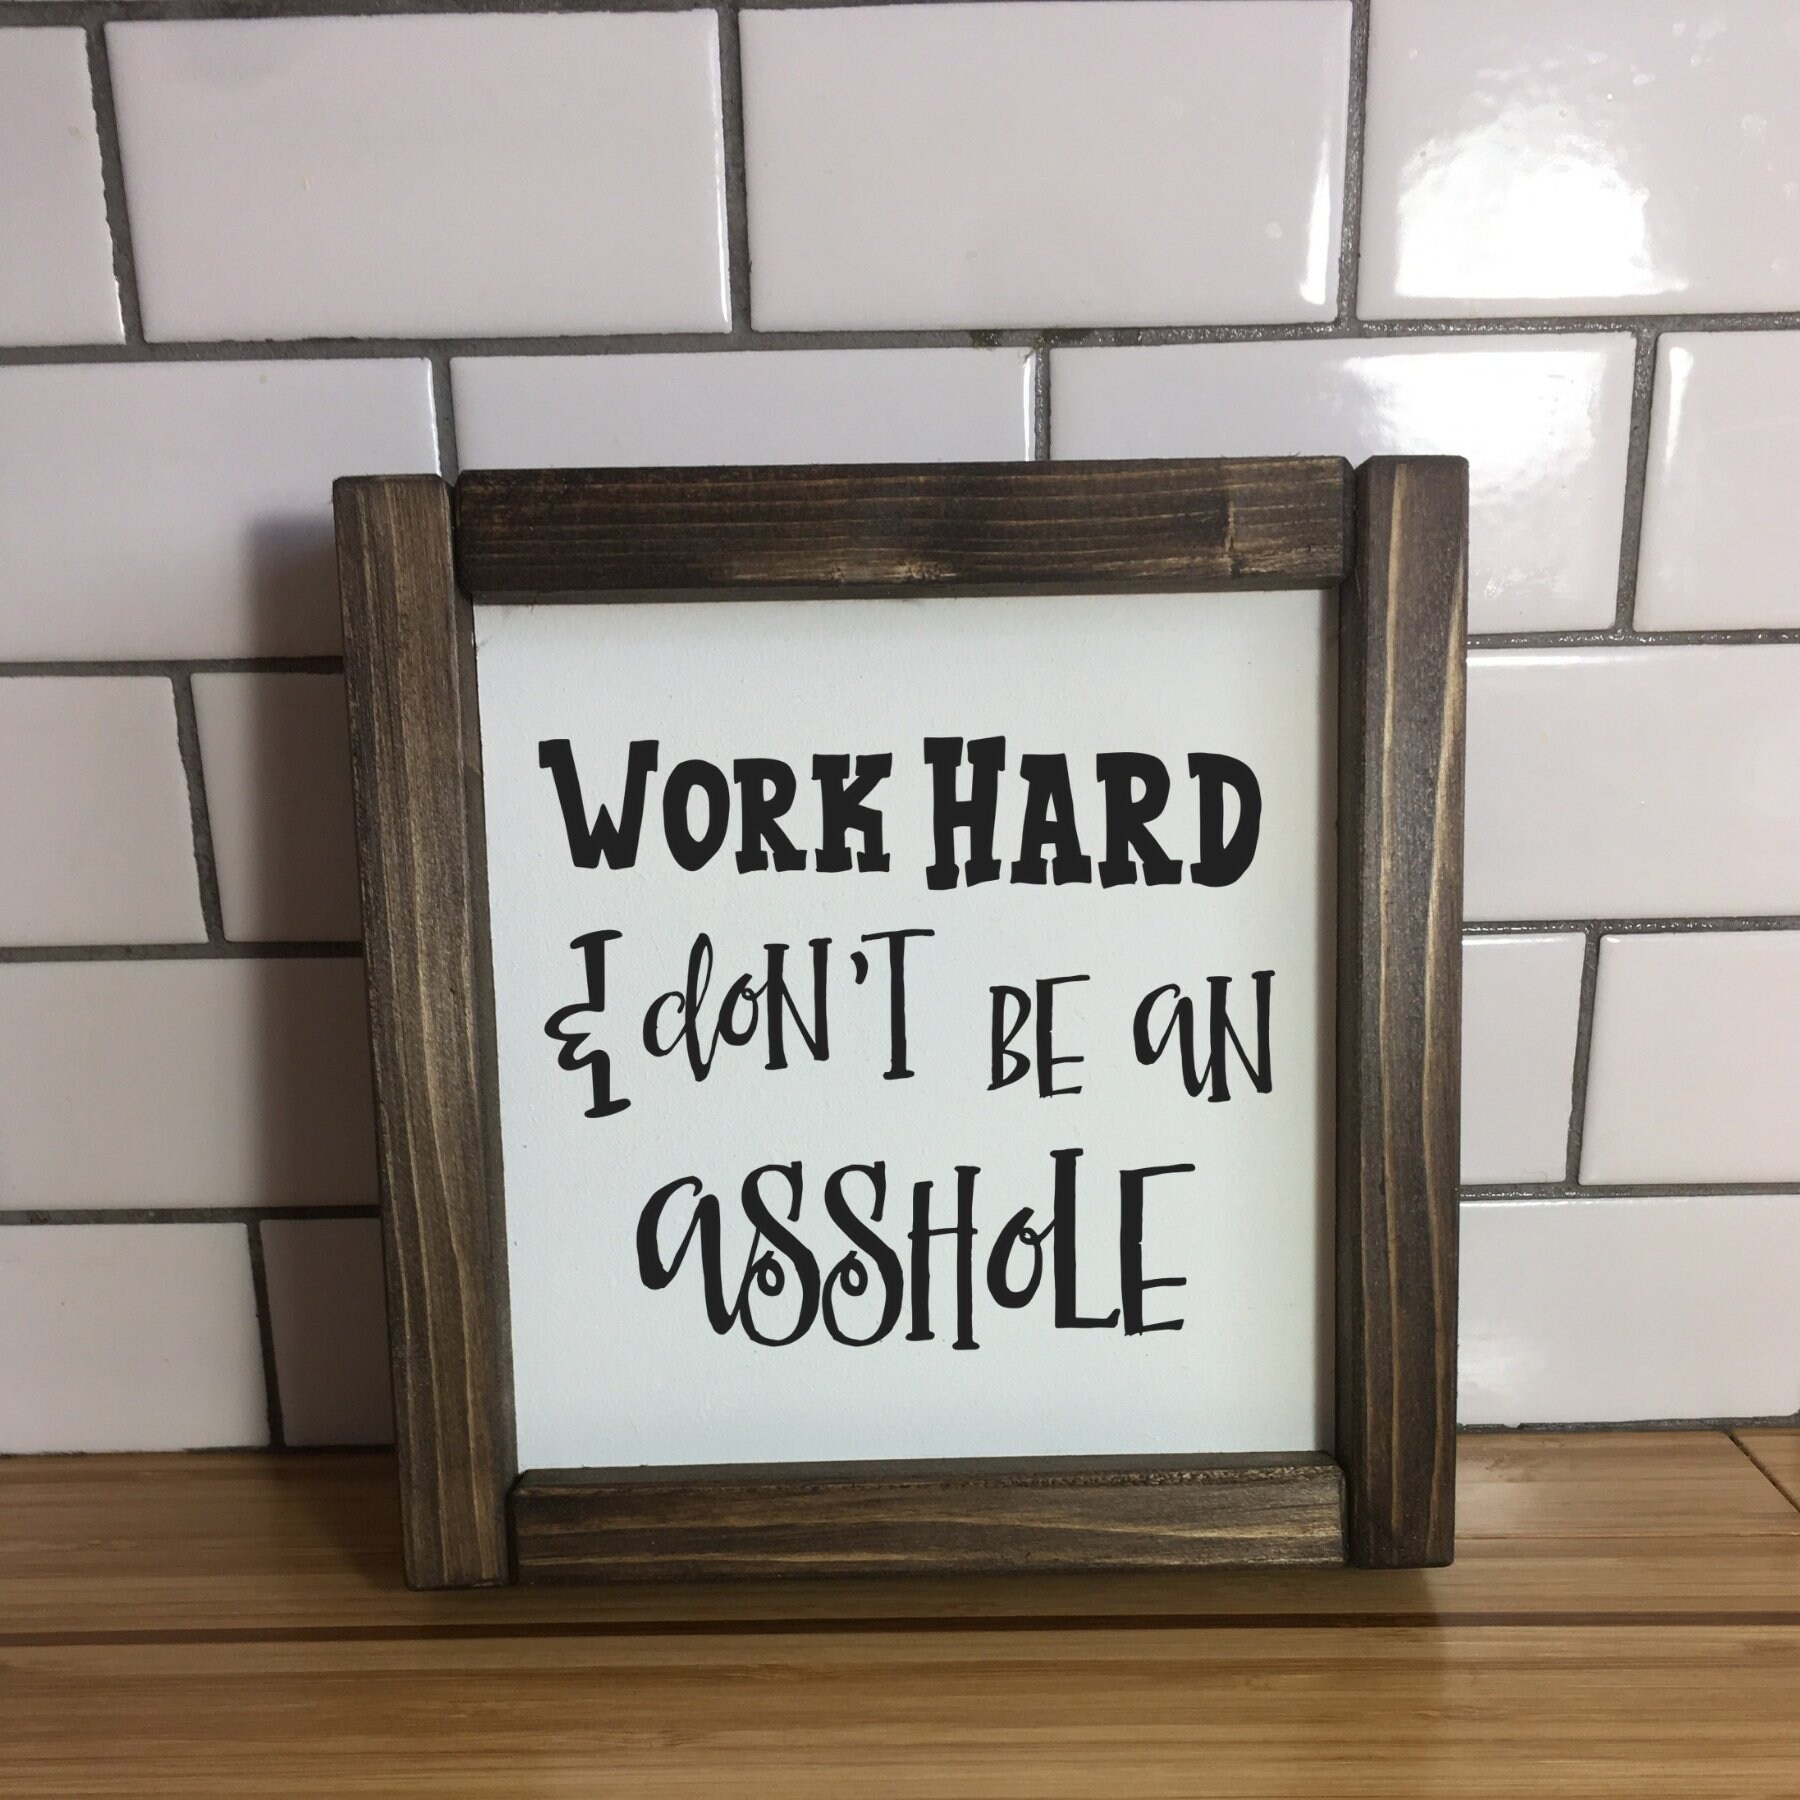 WORK HARD
& doN'T BE aN
aSSHoLE